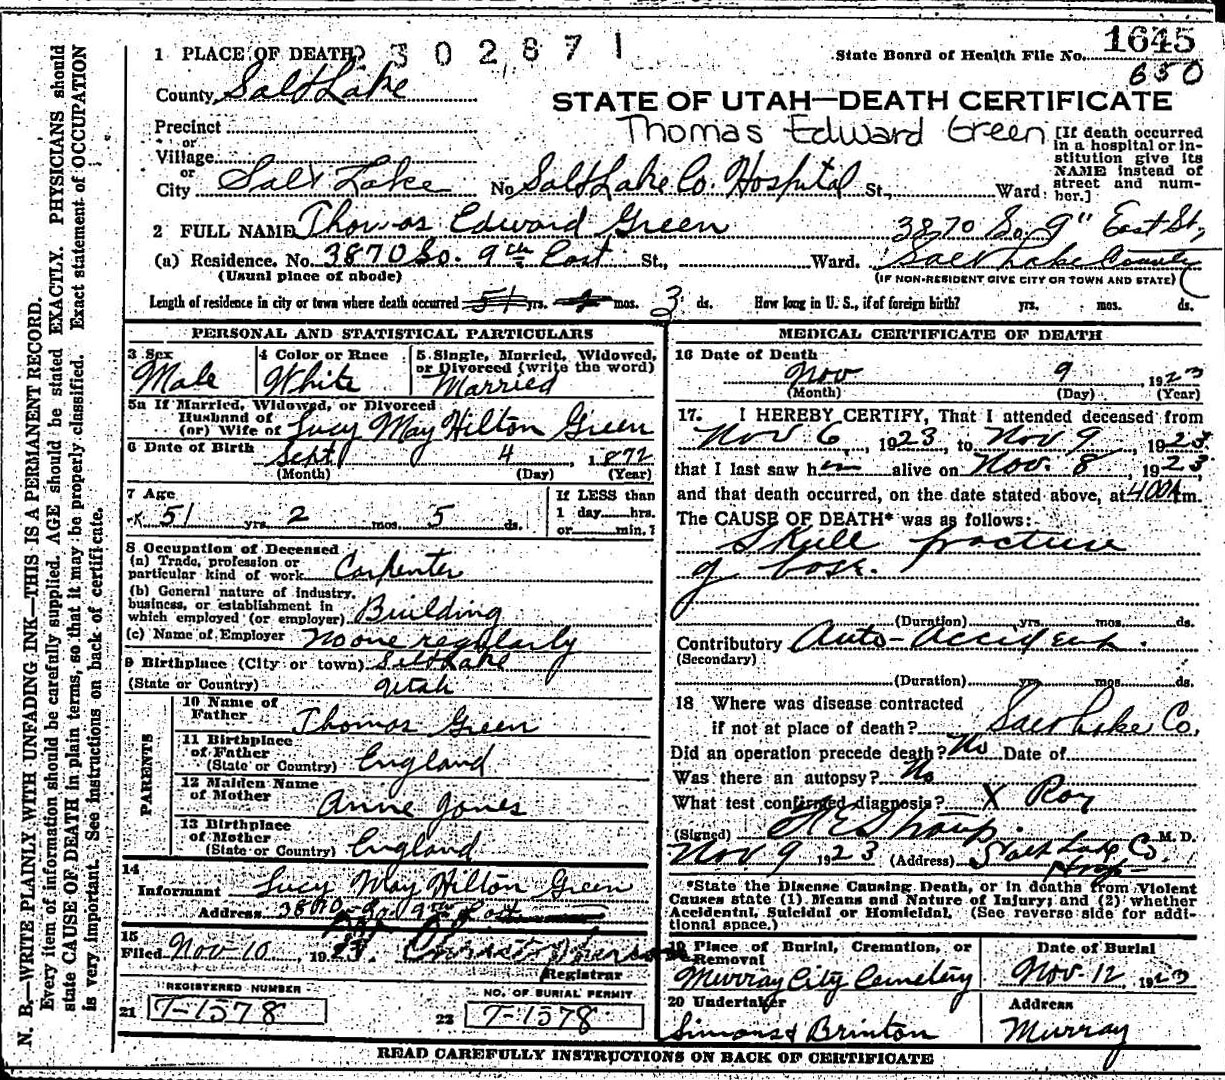 1 PLACE OF DEATH 302871
State Board of Health File No. 1645
650
County Salt Lake
STATE OF UTAH—DEATH CERTIFICATE
Thomas Edward Green
Precinct
or
Village
or
City Salt Lake No Salt Lake Co. Hospital St., Ward.
[If death occurred
in a hospital or in-
stitution give its
NAME instead of
street and num-
ber.]
2 FULL NAME Thomas Edward Green 3870 So. 9" East St,
(a) Residence. No. 3870 So. 9th East St., Ward. Salt Lake County
(Usual place of abode) (IF NON-RESIDENT GIVE CITY OR TOWN AND STATE)
Length of residence in city or town where death occurred 51 yrs. mos. 3 ds. How long in U. S., if of foreign birth? yrs. mos. ds.
PERSONAL AND STATISTICAL PARTICULARS
3 Sex
Male
4 Color or Race
White
5 Single, Married, Widowed,
or Divorced (write the word)
Married
5a If Married, Widowed, or Divorced
Husband of
(or) Wife of Lucy May Hilton Green
6 Date of Birth Sept 4, 1872
(Month) (Day) (Year)
7 Age
51 yrs. 2 mos. 5 ds.
If LESS than
1 day hrs.
or min.?
8 Occupation of Deceased
(a) Trade, profession or
particular kind of work Carpenter
(b) General nature of industry,
business, or establishment in
which employed (or employer) Building
(c) Name of Employer No one regularly
9 Birthplace (City or town) Salt Lake
(State or Country) Utah
PARENTS
10 Name of
Father Thomas Green
11 Birthplace
of Father
(State or Country) England
12 Maiden Name
of Mother Anne Jones
13 Birthplace
of Mother
(State or Country) England
14
Informant Lucy May Hilton Green
Address 3870 So. 9th East
15
Filed Nov-10, 1923.
Registrar
REGISTERED NUMBER
21 T-1578
NO. OF BURIAL PERMIT
22 T-1578
MEDICAL CERTIFICATE OF DEATH
16 Date of Death
Nov 9, 1923
(Month) (Day) (Year)
17. I HEREBY CERTIFY, That I attended deceased from
Nov 6, 1923, to Nov 9, 1923,
that I last saw him alive on Nov. 8, 1923,
and that death occurred, on the date stated above, at 4:00 A m.
The CAUSE OF DEATH* was as follows:
Skull fracture
of base.
(Duration) yrs. mos. ds.
Contributory Auto-Accident.
(Secondary)
(Duration) yrs. mos. ds.
18 Where was disease contracted
if not at place of death? Salt Lake Co.
Did an operation precede death? No Date of
Was there an autopsy? No
What test confirmed diagnosis? X Ray
(Signed) M. D.
Nov 9 1923 (Address) Salt Lake Co.
Hosp
*State the Disease Causing Death, or in deaths from Violent
Causes state (1) Means and Nature of Injury; and (2) whether
Accidental, Suicidal or Homicidal. (See reverse side for addi-
tional space.)
19 Place of Burial, Cremation, or
Removal
Murray City Cemetery
Date of Burial
Nov. 12, 1923
20 Undertaker
Simons & Brinton
Address
Murray
READ CAREFULLY INSTRUCTIONS ON BACK OF CERTIFICATE
N. B.—WRITE PLAINLY WITH UNFADING INK—THIS IS A PERMANENT RECORD.
Every item of information should be carefully supplied. AGE should be stated EXACTLY. PHYSICIANS should
state CAUSE OF DEATH in plain terms, so that it may be properly classified. Exact statement of OCCUPATION
is very important. See instructions on back of certificate.